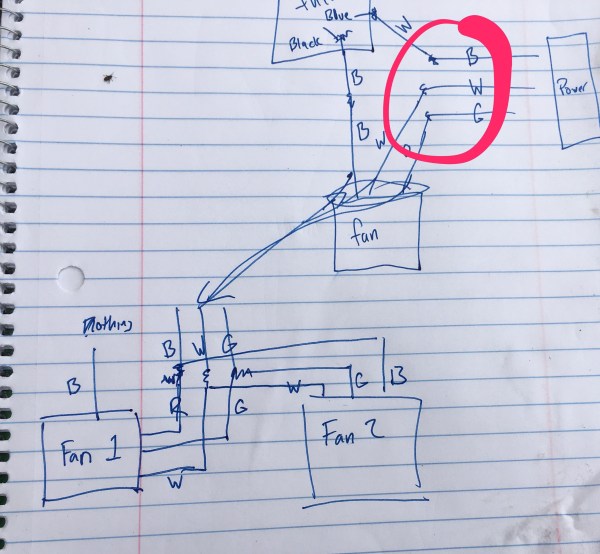 Blue
W
Black
B
W
G
Power
B
B
W
fan
Nothing
B
W
G
B
B
R
G
W
G
B
Fan 1
W
Fan 2